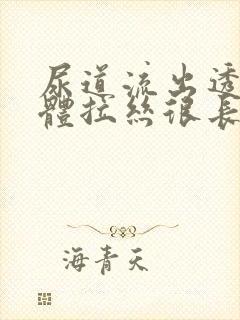 尿道流出透
體拉絲很長
海青天